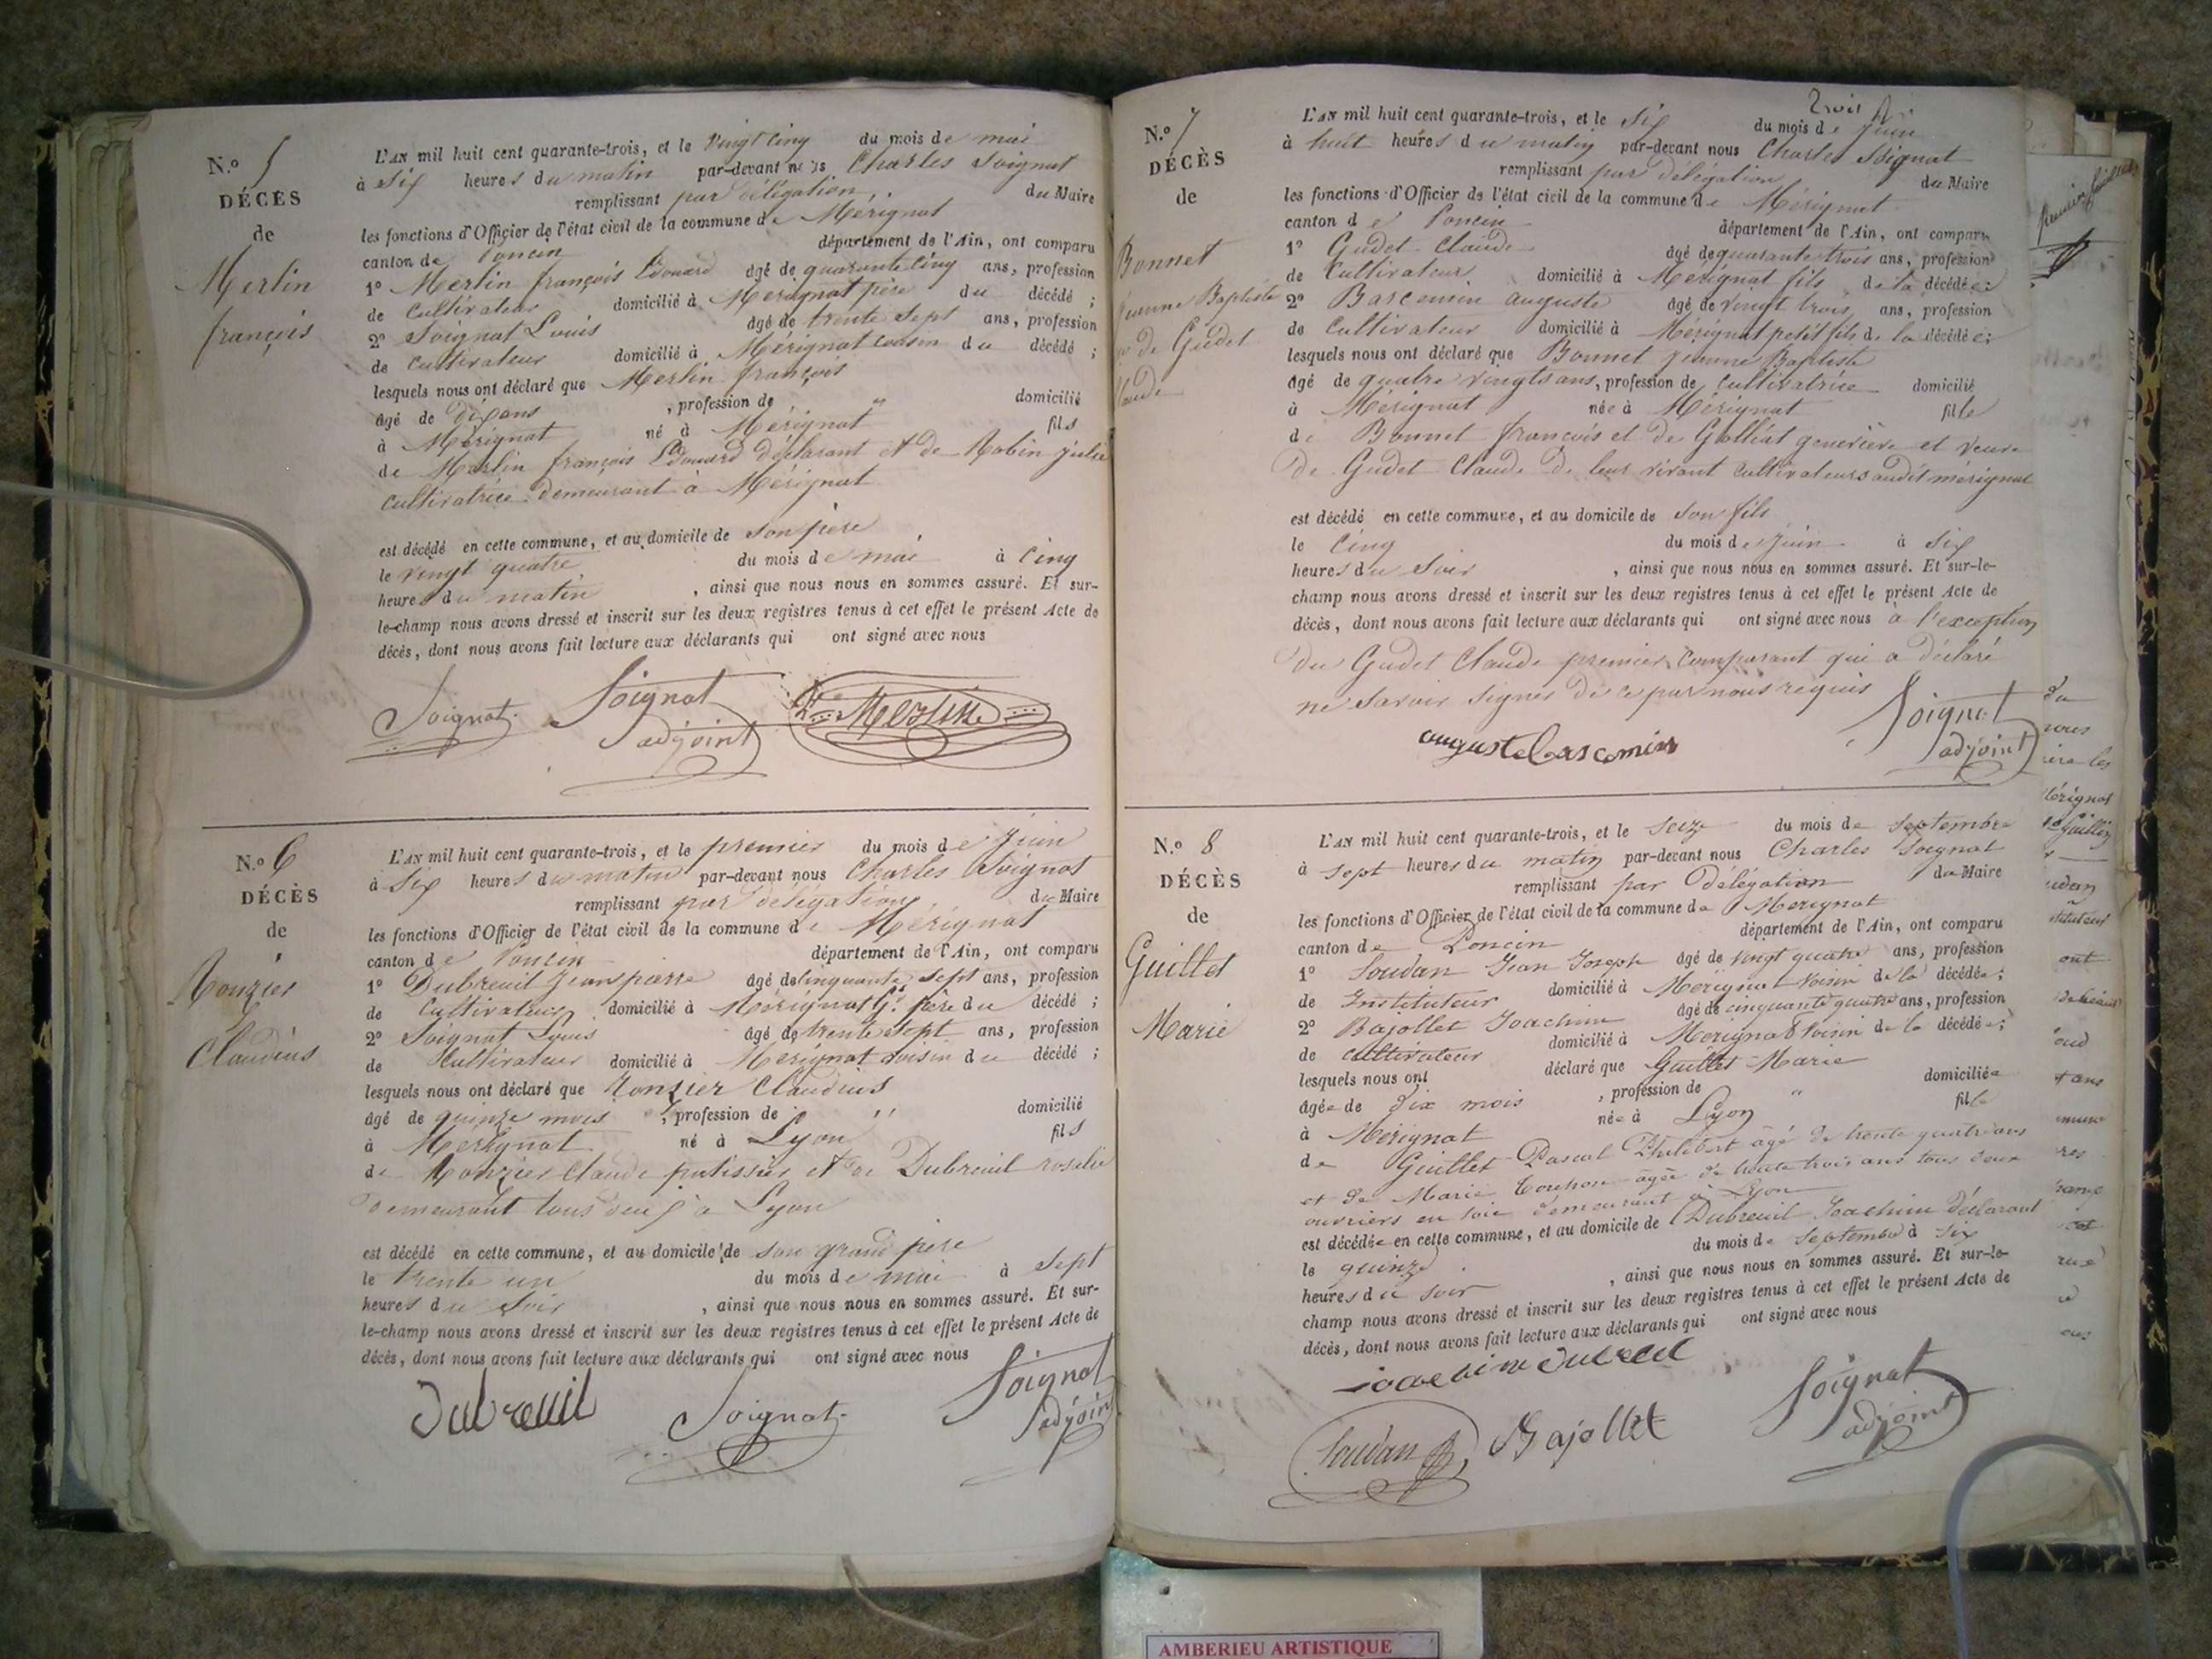 N.o 5
DÉCÈS
de
Merlin
françois
L'AN mil huit cent quarante-trois, et le vingt cinq du mois de mai
à six heures du matin par-devant nous Charles Soignat
remplissant par délégation du Maire
les fonctions d'Officier de l'état civil de la commune de Mérignat
canton de Poncin département de l'Ain, ont comparu
1o Merlin françois Edouard âgé de quarante cinq ans, profession
de cultivateur domicilié à Mérignat père du décédé ;
2o Soignat Louis âgé de trente sept ans, profession
de cultivateur domicilié à Mérignat cousin du décédé ;
lesquels nous ont déclaré que Merlin françois
âgé de dix ans , profession de " domicilié
à Mérignat né à Mérignat fils
de Merlin françois Edouard déclarant et de Robin julie
cultivatrice demeurant à Mérignat
est décédé en cette commune, et au domicile de son père
le vingt quatre du mois de mai à cinq
heures du matin , ainsi que nous nous en sommes assuré. Et sur-
le-champ nous avons dressé et inscrit sur les deux registres tenus à cet effet le présent Acte de
décès, dont nous avons fait lecture aux déclarants qui ont signé avec nous
Soignat Soignat Merlin
adjoint
N.o 6
DÉCÈS
de
Ronzier
Claudius
L'AN mil huit cent quarante-trois, et le premier du mois de Juin
à six heures du matin par-devant nous Charles Soignat
remplissant par délégation du Maire
les fonctions d'Officier de l'état civil de la commune de Mérignat
canton de Poncin département de l'Ain, ont comparu
1o Dubreuil Jean pierre âgé de cinquante sept ans, profession
de cultivateur domicilié à Mérignat Gd père du décédé ;
2o Soignat Louis âgé de trente sept ans, profession
de Cultivateur domicilié à Mérignat voisin du décédé ;
lesquels nous ont déclaré que Ronzier Claudius
âgé de quinze mois , profession de " domicilié
à Mérignat né à Lyon fils
de Ronzier Claude patissier et de Dubreuil rosalie
demeurant tous deux à Lyon
est décédé en cette commune, et au domicile de son grand père
le trente un du mois de mai à sept
heures du soir , ainsi que nous nous en sommes assuré. Et sur-
le-champ nous avons dressé et inscrit sur les deux registres tenus à cet effet le présent Acte de
décès, dont nous avons fait lecture aux déclarants qui ont signé avec nous
Dubreuil Soignat Soignat
adjoint
trois
N.o 7
DÉCÈS
de
Bonnet
jeanne Baptiste
de Gudet
Claude
L'AN mil huit cent quarante-trois, et le six du mois de juin
à huit heures du matin par-devant nous Charles Soignat
remplissant par délégation du Maire
les fonctions d'Officier de l'état civil de la commune de Mérignat
canton de Poncin département de l'Ain, ont comparu
1o Gudet Claude âgé de quarante trois ans, profession
de Cultivateur domicilié à Mérignat fils de la décédée ;
2o Barcemin auguste âgé de vingt trois ans, profession
de Cultivateur domicilié à Mérignat petit fils de la décédée ;
lesquels nous ont déclaré que Bonnet jeanne Baptiste
âgé de quatre vingts ans, profession de cultivatrice domicilié
à Mérignat née à Mérignat fille
de Bonnet françois et de Golliat genevieve et veuve
de Gudet Claude de leur vivant cultivateurs audit mérignat
est décédé en cette commune, et au domicile de son fils
le cinq du mois de juin à six
heures du soir , ainsi que nous nous en sommes assuré. Et sur-le-
champ nous avons dressé et inscrit sur les deux registres tenus à cet effet le présent Acte de
décès, dont nous avons fait lecture aux déclarants qui ont signé avec nous à l'exception
du Gudet Claude premier comparant qui a déclaré
ne savoir signer de ce par nous requis
auguste Barcemin Soignat
adjoint
N.o 8
DÉCÈS
de
Guillet
Marie
L'AN mil huit cent quarante-trois, et le seize du mois de septembre
à sept heures du matin par-devant nous Charles Soignat
remplissant par Délégation du Maire
les fonctions d'Officier de l'état civil de la commune de Mérignat
canton de Poncin département de l'Ain, ont comparu
1o Soudan Jean Joseph âgé de vingt quatre ans, profession
de Instituteur domicilié à Mérignat voisin de la décédée ;
2o Bajollet Joachim âgé de cinquante quatre ans, profession
de cultivateur domicilié à Mérignat voisin de la décédée ;
lesquels nous ont déclaré que Guillet Marie
âgée de dix mois , profession de " domiciliée
à Mérignat née à Lyon fille
de Guillet Pascal Philibert âgé de trente quatre ans
et de Marie Couhon âgée de trente trois ans tous deux
ouvriers en soie demeurant à Lyon
est décédée en cette commune, et au domicile de Dubreuil Joachim déclarant
le quinze du mois de septembre à six
heures du soir , ainsi que nous nous en sommes assuré. Et sur-le-
champ nous avons dressé et inscrit sur les deux registres tenus à cet effet le présent Acte de
décès, dont nous avons fait lecture aux déclarants qui ont signé avec nous
joachim dubreuil
Soudan Bajollet Soignat
adjoint
AMBERIEU ARTISTIQUE